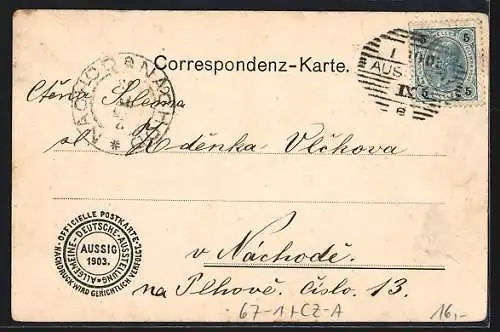 Correspondenz-Karte.
5 5
AUS
IX
e
NACHOD NÁCHOD
Ctěná Slečna
sl. Zděnka Vlčkova
OFFICIELLE POSTKARTE
ALLGEMEINE-DEUTSCHE-AUSSTELLUNG
AUSSIG
1903.
NACHDRUCK WIRD GERICHTLICH VERFOLGT
v Náchodě.
na Plhově. Číslo. 13.
67-1+CZ-A
16,-